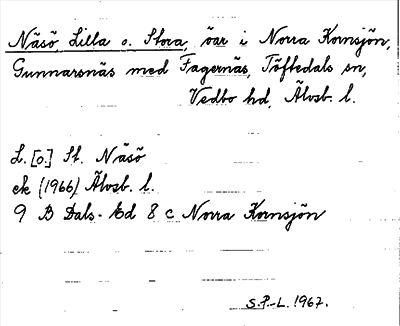 Näsö, Lilla o. Stora, öar i Norra Kornsjön,
Gunnarsnäs med Fagernäs, Töftedals sn,
Vedbo hd, Älvsb. l.
L. [o.] St. Näsö
ek (1966) Älvsb. l.
9 B Dals-Ed 8 c Norra Kornsjön
S.P-L. 1967.